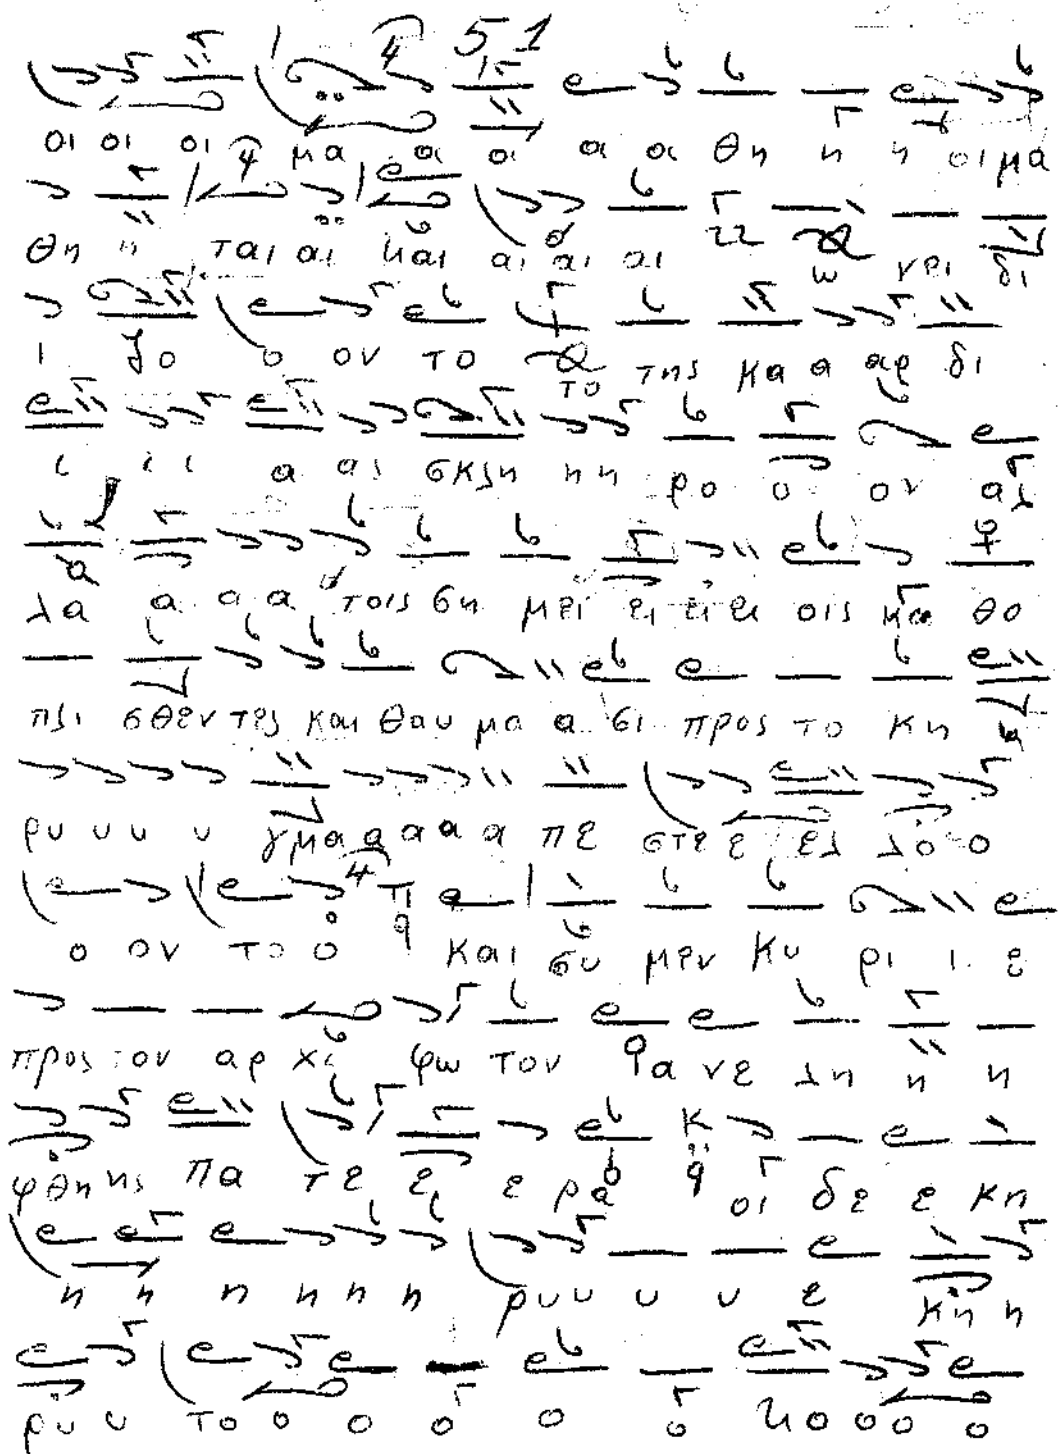 51
οι οι οι μα α α α α θη η η οι μα
θη η ται αι και αι αι αι ω νει δι
ι ζο ο ον το το της κα α αρ δι
ι ι ι α ας σκλη η η ρο ο ον αλ
λα α α α τοις ση μει ει ει ει οις κα θο
πλι σθεν τες και θαυ μα α σι προς το κη η
ρυ υ υ υ γμα α α α α πε στε ε ελ λο ο
ο ον το ο και συ μεν κυ ρι ι ε
προς τον αρ χι φω τον α νε λη η η
φθη ης πα τε ε ε ρα οι δε ε κη
η η η η η η ρυ υ υ υ υ ε κη η
ρυ υ υ το ο ο ο ο ο κο ο ο ο